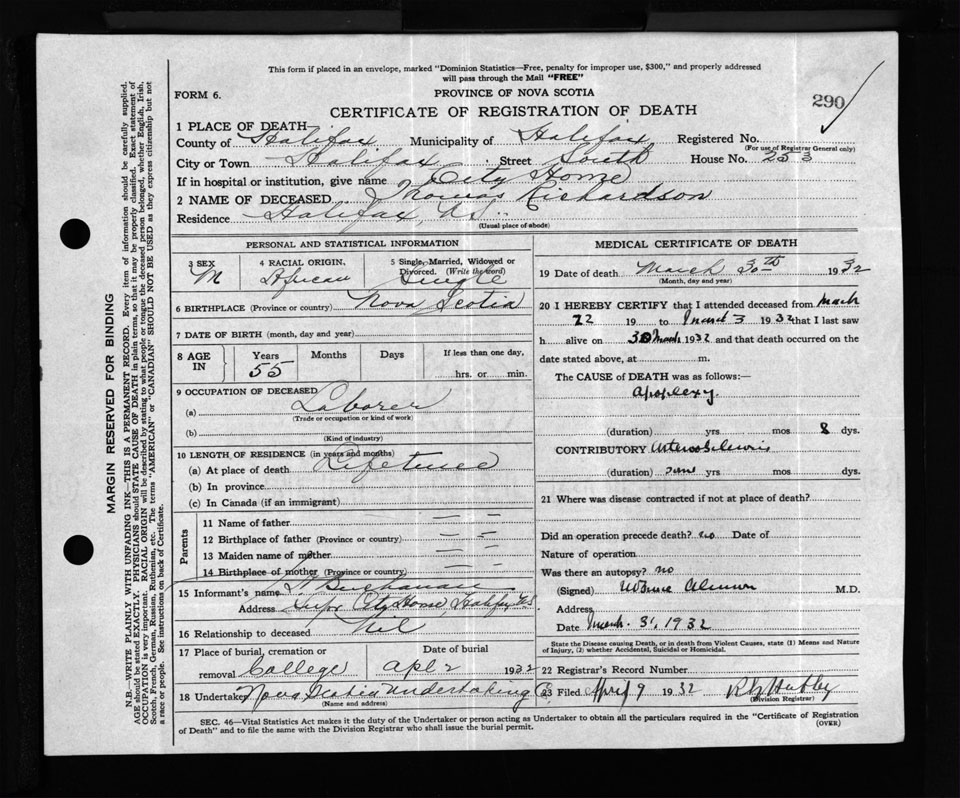 This form if placed in an envelope, marked "Dominion Statistics—Free, penalty for improper use, $300," and properly addressed
will pass through the Mail "FREE"
FORM 6.
PROVINCE OF NOVA SCOTIA
290
CERTIFICATE OF REGISTRATION OF DEATH
1 PLACE OF DEATH
County of Halifax Municipality of Halifax Registered No.
(For use of Registrar General only)
City or Town Halifax Street South House No. 253
If in hospital or institution, give name City Home
2 NAME OF DECEASED Richardson
Residence Halifax NS.
(Usual place of abode)
PERSONAL AND STATISTICAL INFORMATION
3 SEX
M
4 RACIAL ORIGIN,
African
5 Single, Married, Widowed or
Divorced. (Write the word)
Single
6 BIRTHPLACE (Province or country) Nova Scotia
7 DATE OF BIRTH (month, day and year)
8 AGE IN Years Months Days If less than one day,
55 hrs. or min.
9 OCCUPATION OF DECEASED
(a) Laborer
(Trade or occupation or kind of work)
(b)
(Kind of industry)
10 LENGTH OF RESIDENCE (in years and months)
(a) At place of death Lifetime
(b) In province
(c) In Canada (if an immigrant)
Parents
11 Name of father — —
12 Birthplace of father (Province or country) — —
13 Maiden name of mother — —
14 Birthplace of mother (Province or country) — —
15 Informant's name Buchanan
Address Supt City Home, Halifax NS.
16 Relationship to deceased Nil
17 Place of burial, cremation or
removal College
Date of burial
Apl 2 1932
18 Undertaker Nova Scotia Undertaking Co
(Name and address)
MEDICAL CERTIFICATE OF DEATH
19 Date of death March 30th 1932
(Month, day and year)
20 I HEREBY CERTIFY that I attended deceased from March
22 19 to March 3 1932 that I last saw
h alive on 30 March 1932 and that death occurred on the
date stated above, at m.
The CAUSE of DEATH was as follows:—
Apoplexy.
(duration) yrs. mos 8 dys.
CONTRIBUTORY
(duration) yrs mos. dys.
21 Where was disease contracted if not at place of death?
Did an operation precede death? no Date of
Nature of operation
Was there an autopsy? no
(Signed) M.D.
Address
Date March 31, 1932
State the Disease causing Death, or in death from Violent Causes, state (1) Means and Nature
of Injury, (2) whether Accidental, Suicidal or Homicidal.
22 Registrar's Record Number
23 Filed April 9 1932
(Division Registrar)
SEC. 46—Vital Statistics Act makes it the duty of the Undertaker or person acting as Undertaker to obtain all the particulars required in the "Certificate of Registration
of Death" and to file the same with the Division Registrar who shall issue the burial permit.
(OVER)
MARGIN RESERVED FOR BINDING
N.B.—WRITE PLAINLY WITH UNFADING INK—THIS IS A PERMANENT RECORD. Every item of information should be carefully supplied.
AGE should be stated EXACTLY. PHYSICIANS should STATE CAUSE OF DEATH in plain terms, so that it may be properly classified. Exact statement of
OCCUPATION is very important. RACIAL ORIGIN will be described by stating to what people or tongue the deceased person belonged, whether English, Irish,
Scotch, French, German, Russian, Ruthenian, etc. The terms "AMERICAN" or "CANADIAN" SHOULD NOT BE USED as they express citizenship but not
a race or people. See instructions on back of Certificate.